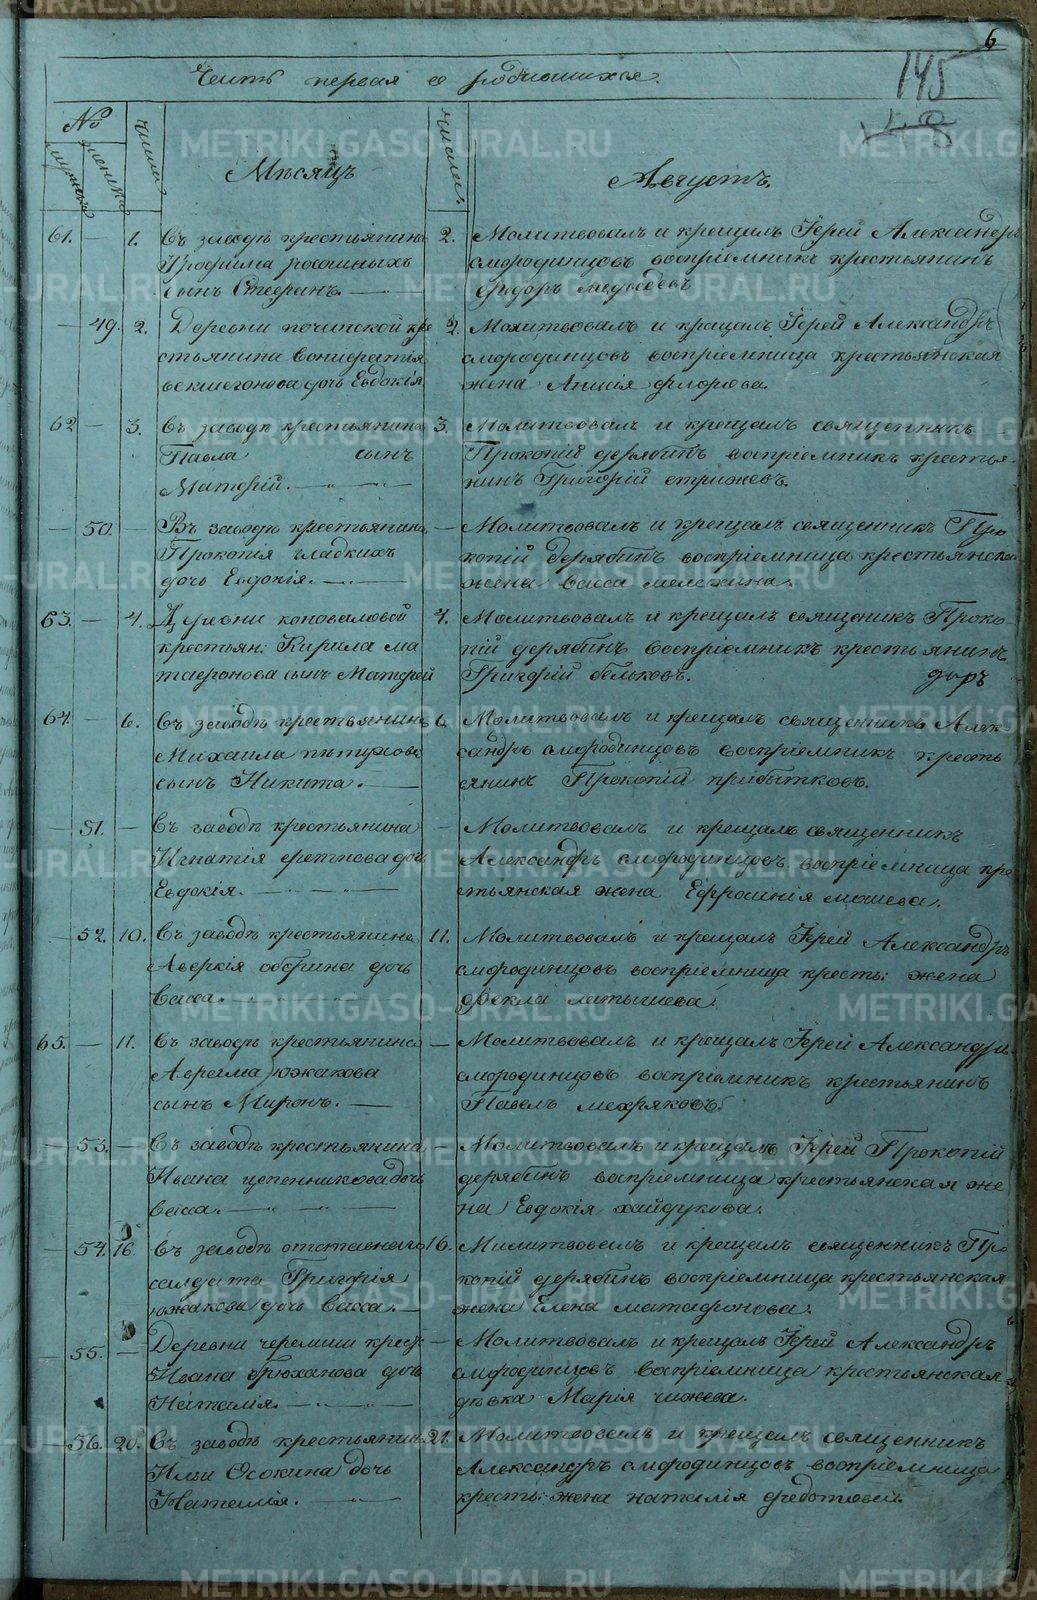 6
145
Часть первая о родившихся.
№
числа
числа.
Мѣсяцъ
Августъ.
61. — 1. Въ заводѣ крестьянина 2. Молитвовалъ и крещалъ Іерей Александръ
Трофима сынъ смородинцовъ воспріемникъ крестьянинъ
Ѳедоръ
— 49. 2. Деревни починской кре 2. Молитвовалъ и крещалъ Іерей Александръ
стьянина дочь Евдокія смородинцовъ воспріемница крестьянская
жена Анисія флорова.
62 — 3. Въ заводѣ крестьянина 3. Молитвовалъ и крещалъ священникъ
Павла сынъ Прокопій дерябинъ воспріемникъ крестья
Матфій. нинъ Григорій стрижевъ.
— 50. — Въ заводѣ крестьянина — Молитвовалъ и крещалъ священникъ Про
Прокопія гладкихъ копій дерябинъ воспріемница крестьянска
дочь Евдокія. жена Васса мелехина.
63. — 4. Деревни коноваловой 4. Молитвовалъ и крещалъ священикъ Проко
крестьян: Кирила ма пій дерябинъ воспріемникъ крестьянинъ
тафонова сынъ Матфей Григорій бельковъ.
64. — 6. Въ заводѣ крестьянина 6. Молитвовалъ и крещалъ священникъ Алек
Михаила пѣтухова сандръ смородинцовъ воспріемникъ кресть
сынъ Никита. янинъ Прокопій прибытковъ.
— 51. — Въ заводѣ крестьянина — Молитвовалъ и крещалъ священникъ
Игнатія дочь Александръ смородинцовъ воспріемница кре
Евдокія. стьянская жена Ефросинія мошева.
— 52. 10. Въ заводѣ крестьянина 11. Молитвовалъ и крещалъ Іерей Александръ
Аверкія оборина дочь смородинцовъ воспріемница кресть: жена
Васса. Фекла латышева.
65. — 11. Въ заводѣ крестьянина — Молитвовалъ и крещалъ Іерей Александръ
южакова смородинцовъ воспріемникъ крестьянинъ
сынъ Миронъ. Павелъ мехряковъ.
53. — Въ заводѣ крестьянина — Молитвовалъ и крещалъ Іерей Прокопій
Ивана цепенникова дочь дерябинъ воспріемница крестьянская же
Васса. на Евдокія хайдукова.
— 54. 16. Въ заводѣ отставнаго 16. Молитвовалъ и крещалъ священникъ Про
салдата Григорія копій дерябинъ воспріемница крестьянская
южакова дочь Васса. жена Елена матафонова.
— 55. — Деревни черемши крест: — Молитвовалъ и крещалъ Іерей Александръ
Ивана брюханова дочь смородинцовъ воспріемница крестьянская
Наталія. дѣвка Марія чижева.
— 56. 20. Въ заводѣ крестьянина 21. Молитвовалъ и крещалъ священникъ
Ильи Осокина дочь Александръ смородинцовъ воспріемница
Наталія. кресть: жена наталія федотовой.
METRIKI.GASO-URAL.RU